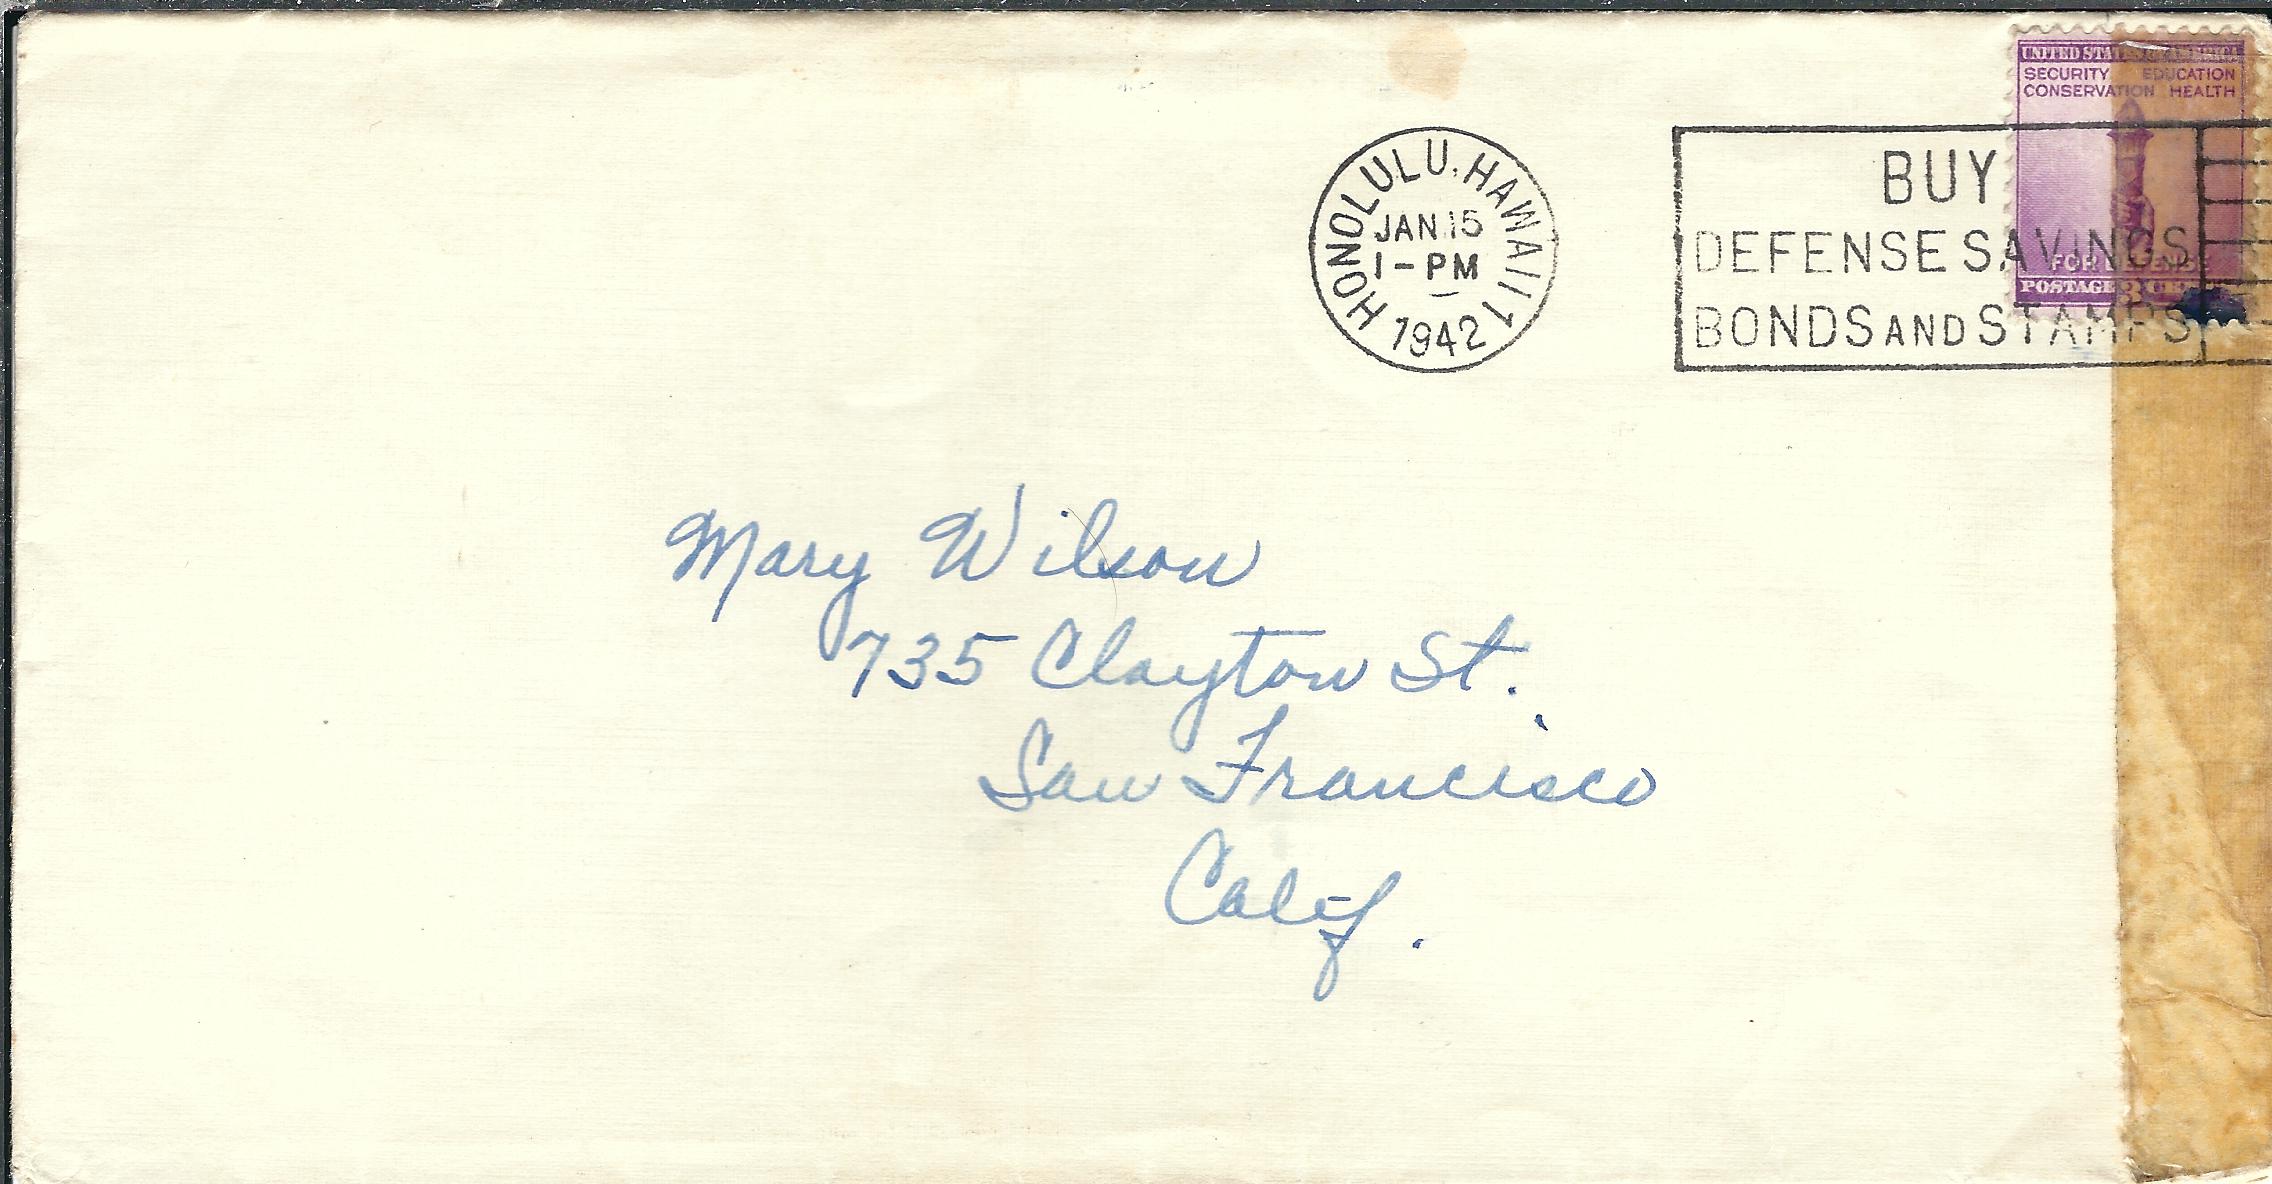 UNITED STATES OF AMERICA
SECURITY EDUCATION
CONSERVATION HEALTH
FOR DEFENSE
POSTAGE 3 CENTS
HONOLULU, HAWAII 1
JAN 15
1-PM
1942
BUY
DEFENSE SAVINGS
BONDS AND STAMPS
Mary Wilson
735 Clayton St.
San Francisco
Calif.